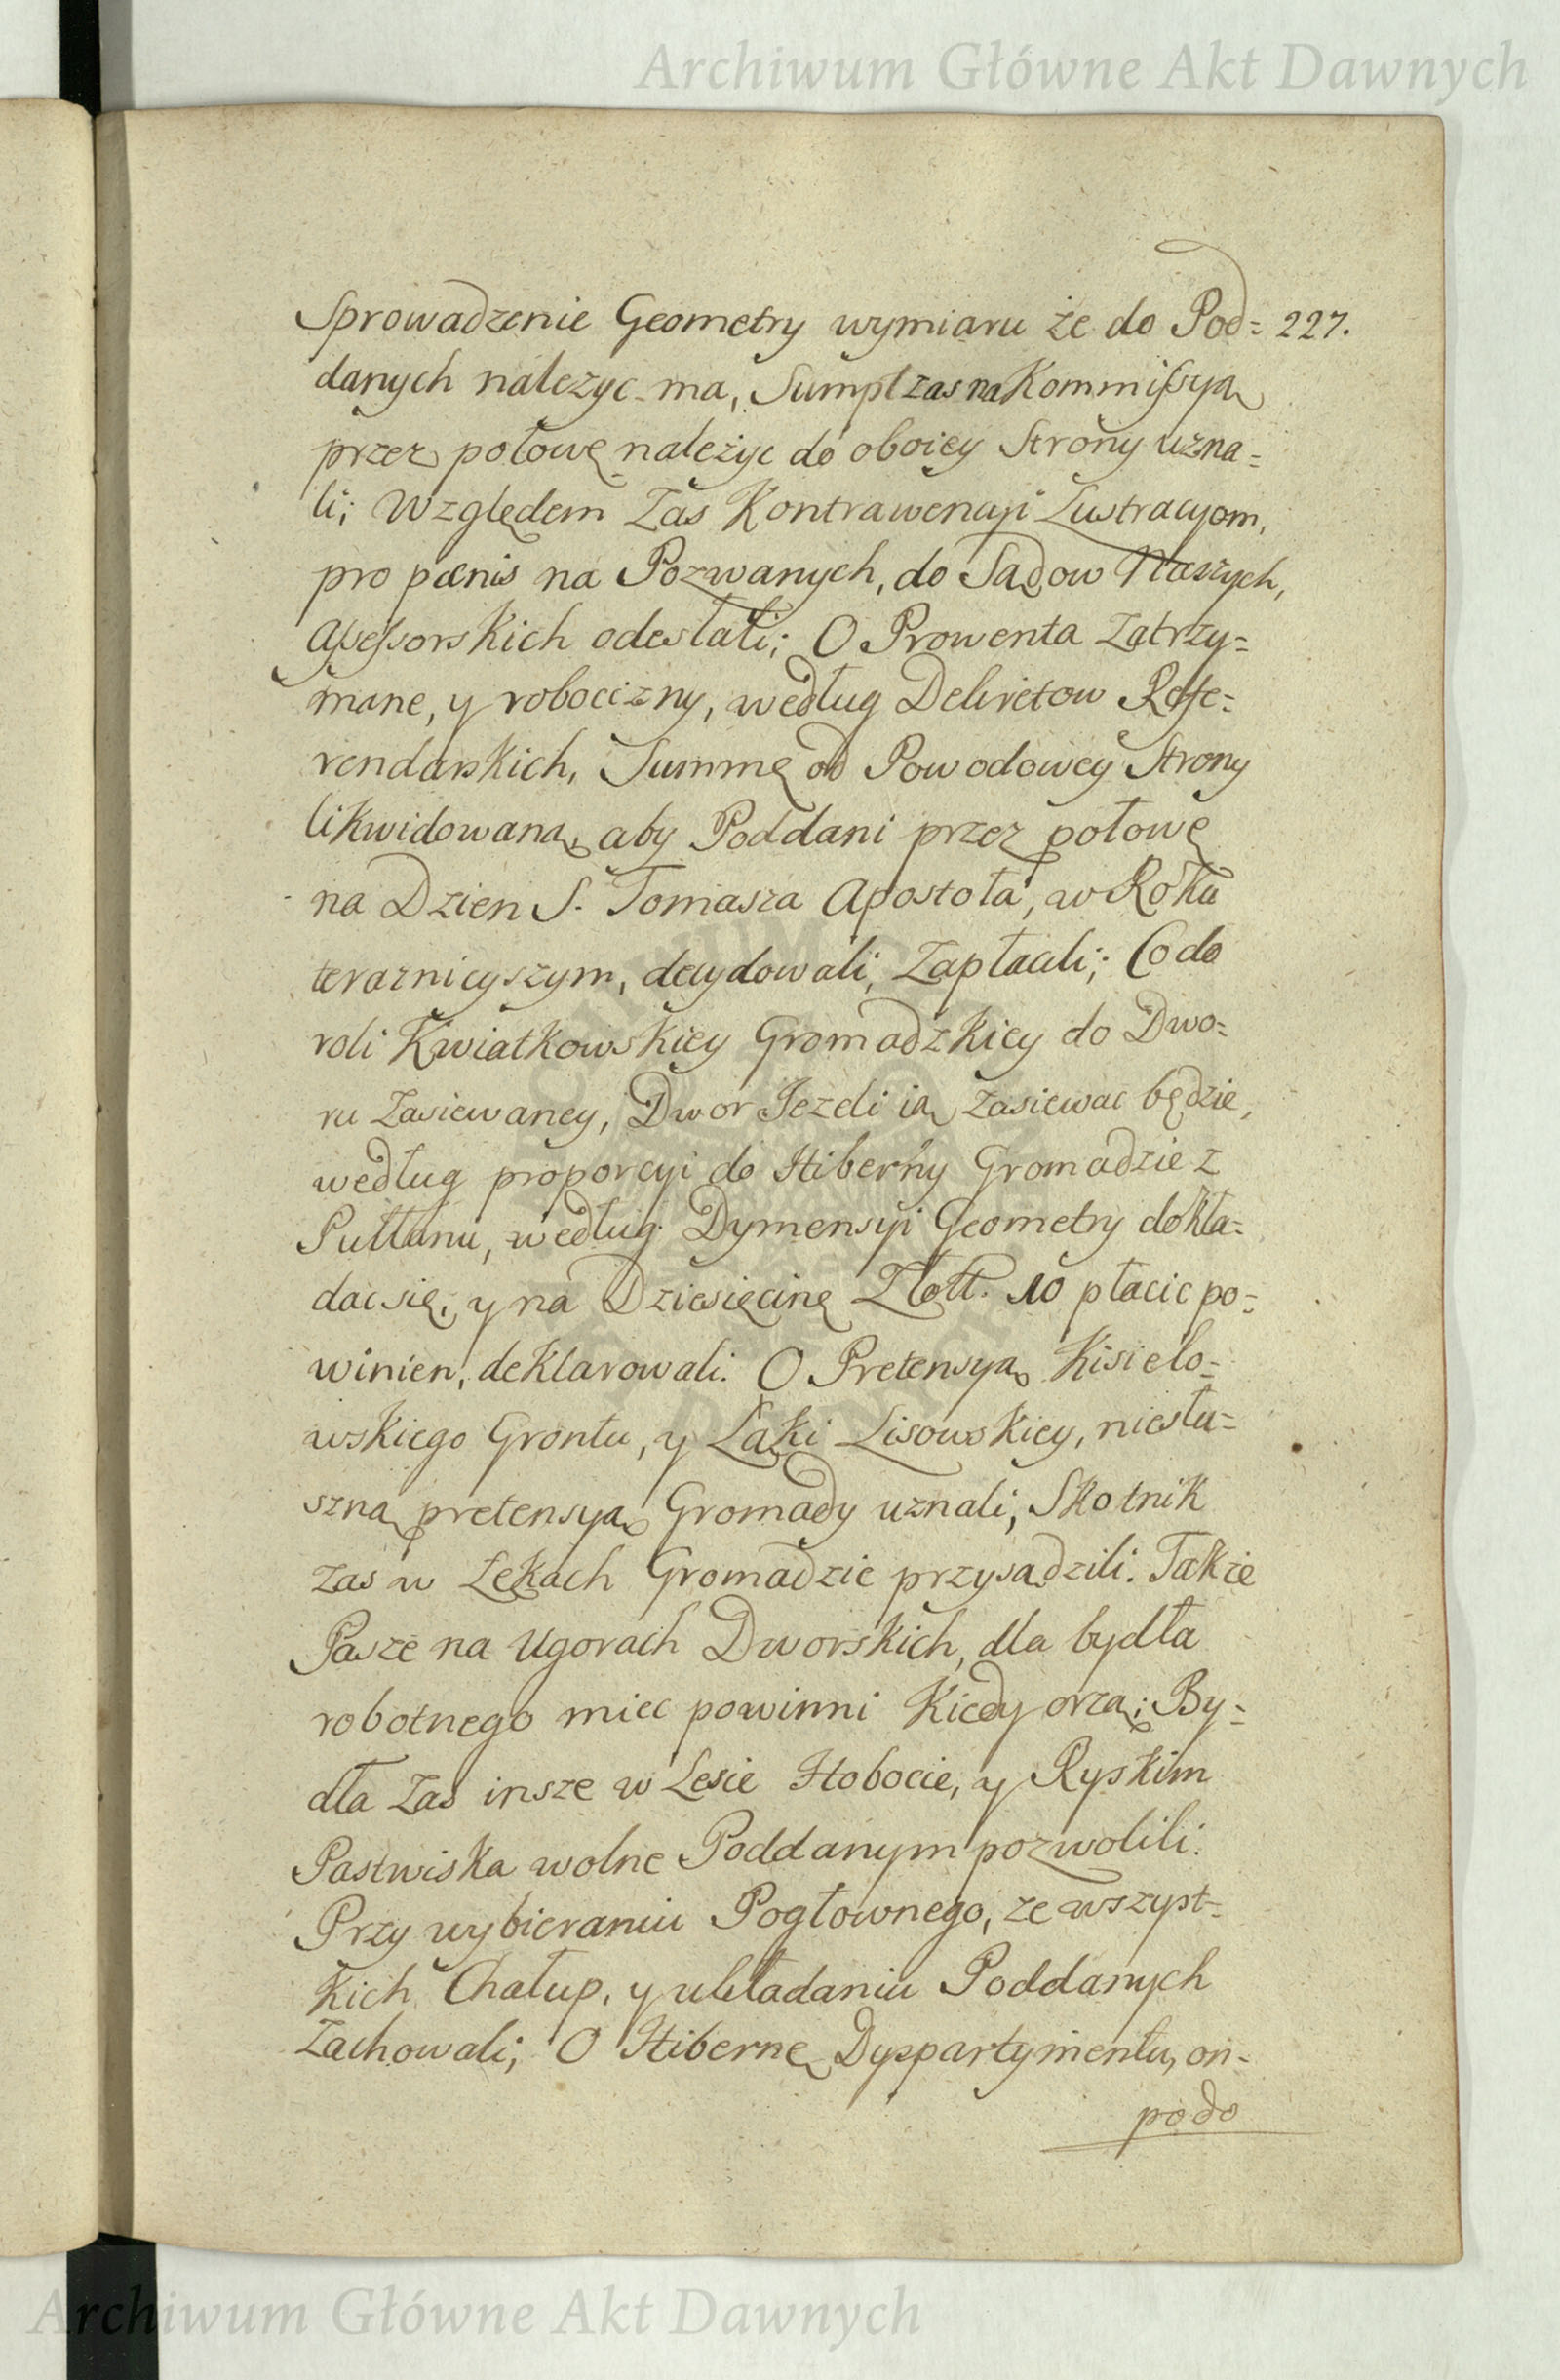 Archiwum Główne Akt Dawnych
Sprowadzenie Geometry wymiaru że do Pod= 227.
danych nalezyc ma, Sumpt zas na Kommissyą
przez połowę należyc do oboiey Strony uzna=
li; Względem Zas Kontrawencyi Lustracyom,
pro pœnis na Pozwanych, do Sądow Naszych,
Assessorskich odesłali; O Prowenta Zatrzy=
mane, y robocizny, według Dekretow Refe=
rendarskich, Summę od Powodowey Strony
likwidowaną, aby Poddani przez połowę
na Dzien S. Tomasza Apostoła, w Roku
teraznieyszym, decydowali, Zapłacili; Co do
roli Kwiatkowskiey Gromadzkiey do Dwo=
ru Zasiewaney, Dwor Jezeli ią zasiewac będzie,
według proporcyi do Hiberny Gromadzie z
Pułłanu, według Dymensyi Geometry dokła=
dac się, y na Dziesięcinę Złott. 10 płacic po=
winien, deklarowali. O Pretensyą Kisielo=
wskiego Grontu, y Łąki Lisowskiey, niesłu=
szną pretensyą Gromady uznali, Skotnik
zas w Łękach Gromadzie przysądzili. Takze
Pasze na Ugorach Dworskich, dla bydła
robotnego miec powinni Kiedy orzą; By=
dła Zas insze w Lesie Hobocie, y Ryskim
Pastwiska wolne Poddanym pozwolili.
Przy wybieraniu Pogłownego, ze wszyst=
kich Chałup, y układaniu Poddanych
Zachowali; O Hibernę Dyspartymentu, on=
podo
Archiwum Główne Akt Dawnych